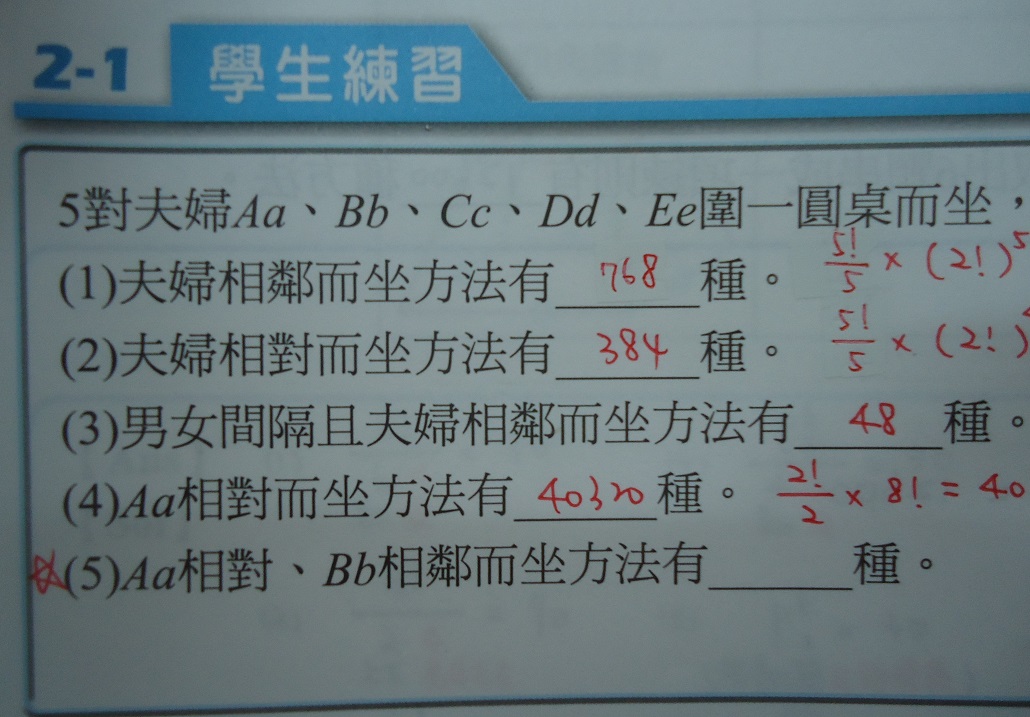 2-1 學生練習
5對夫婦Aa、Bb、Cc、Dd、Ee圍一圓桌而坐,
(1)夫婦相鄰而坐方法有 768 種。 5!/5 × (2!)^5
(2)夫婦相對而坐方法有 384 種。 5!/5 × (2!)
(3)男女間隔且夫婦相鄰而坐方法有 48 種。
(4)Aa相對而坐方法有 40320 種。 2!/2 × 8! = 40
☆(5)Aa相對、Bb相鄰而坐方法有______種。